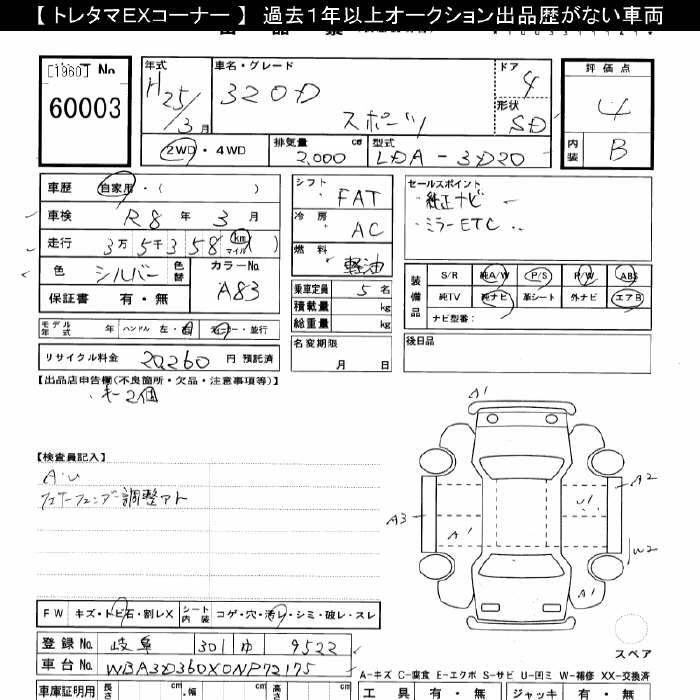 【 トレタマEXコーナー 】 過去1年以上オークション出品歴がない車両
[1960] No
60003
年式
H25/3月
車名・グレード
320D
スポーツ
ドア
4
形状
SD
評価点
4
内装
B
2WD・4WD
排気量
2,000 cc
型式
LDA-3D20
車歴 自家用・( )
車検 R8 年 3 月
走行 3万5千358 km マイル( )
色 シルバー 色替
カラーNo A83
保証書 有・無
モデル年式 年 ハンドル 左・右 ディーラー・並行
リサイクル料金 20,260 円 預託済
シフト FAT
冷房 AC
燃料 軽油
乗車定員 5 名
積載量 kg
総重量 kg
名変期限
月 日
セールスポイント
・純正ナビ
・ミラーETC
装備品
S/R 純A/W P/S P/W ABS
純TV 純ナビ 革シート 外ナビ エアB
ナビ型番:
後日品
【出品店申告欄(不良箇所・欠品・注意事項等)】
・キー2個
【検査員記入】
A・U
調整アト
A1
A2
A3
A1
U1
W2
A1
スペア
FW キズ・トビ石・割レX
シート内装 コゲ・穴・汚レ・シミ・破レ・スレ
登録No. 岐阜 301 ゆ 9522
車台No. WBA3D360X0NP72175
A-キズ C-腐食 E-エクボ S-サビ U-凹ミ W-補修 XX-交換済
車庫証明用 長さ cm 幅 cm 高さ cm
工具 有・無 ジャッキ 有・無